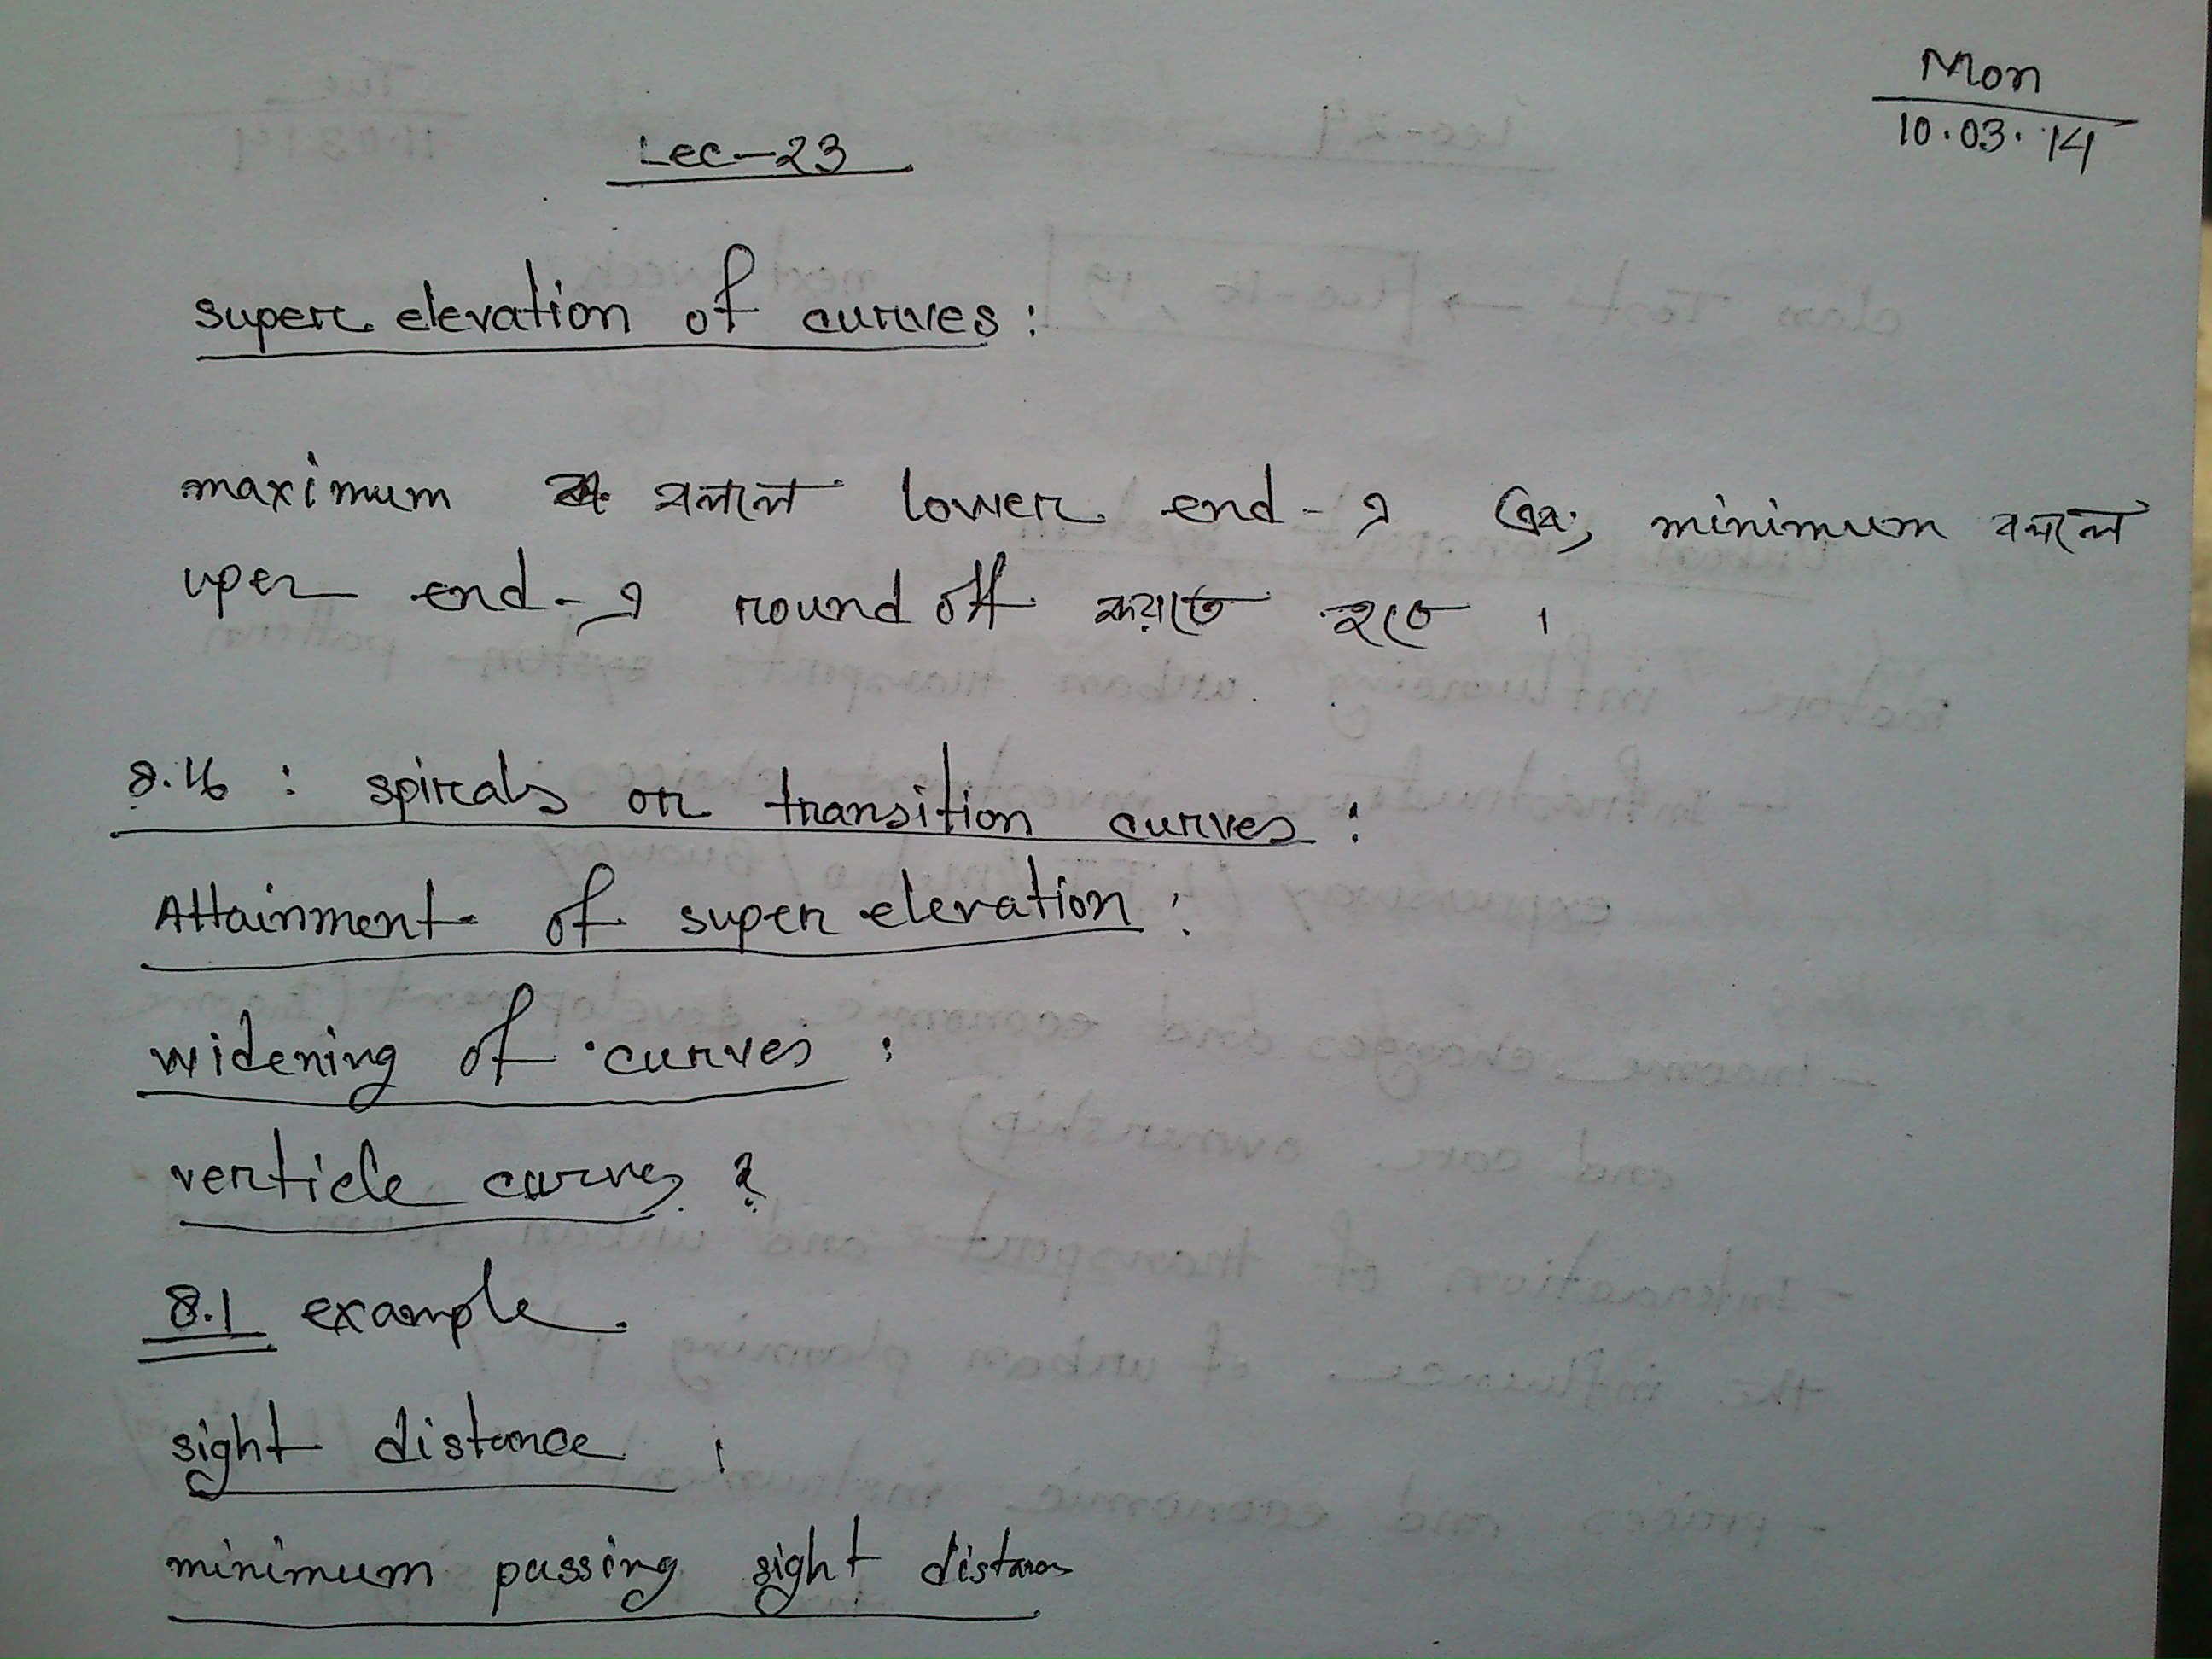 Mon
10.03.14
Lec-23
super elevation of curves :
maximum বললে lower end-এ এবং minimum বললে
uper end-এ round off করতে হবে ।
8.16 : spirals or transition curves :
Attainment of super elevation :
widening of curves :
verticle curves :
8.1 example
sight distance :
minimum passing sight distance